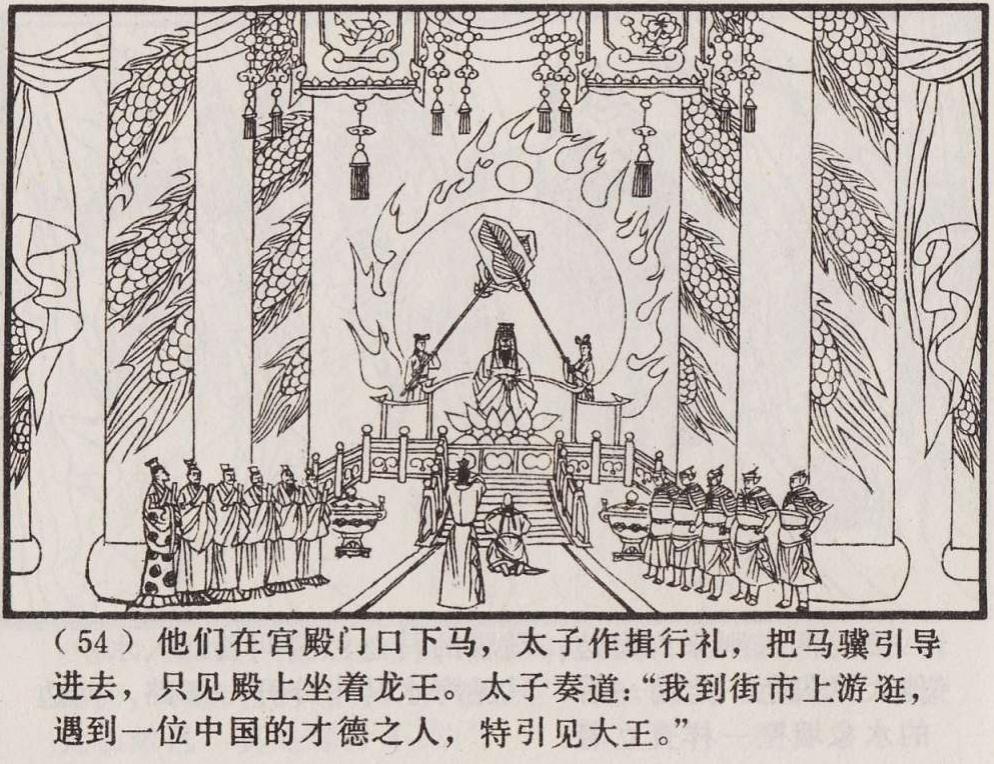 （54）他们在宫殿门口下马，太子作揖行礼，把马骥引导
进去，只见殿上坐着龙王。太子奏道：“我到街市上游逛，
遇到一位中国的才德之人，特引见大王。”